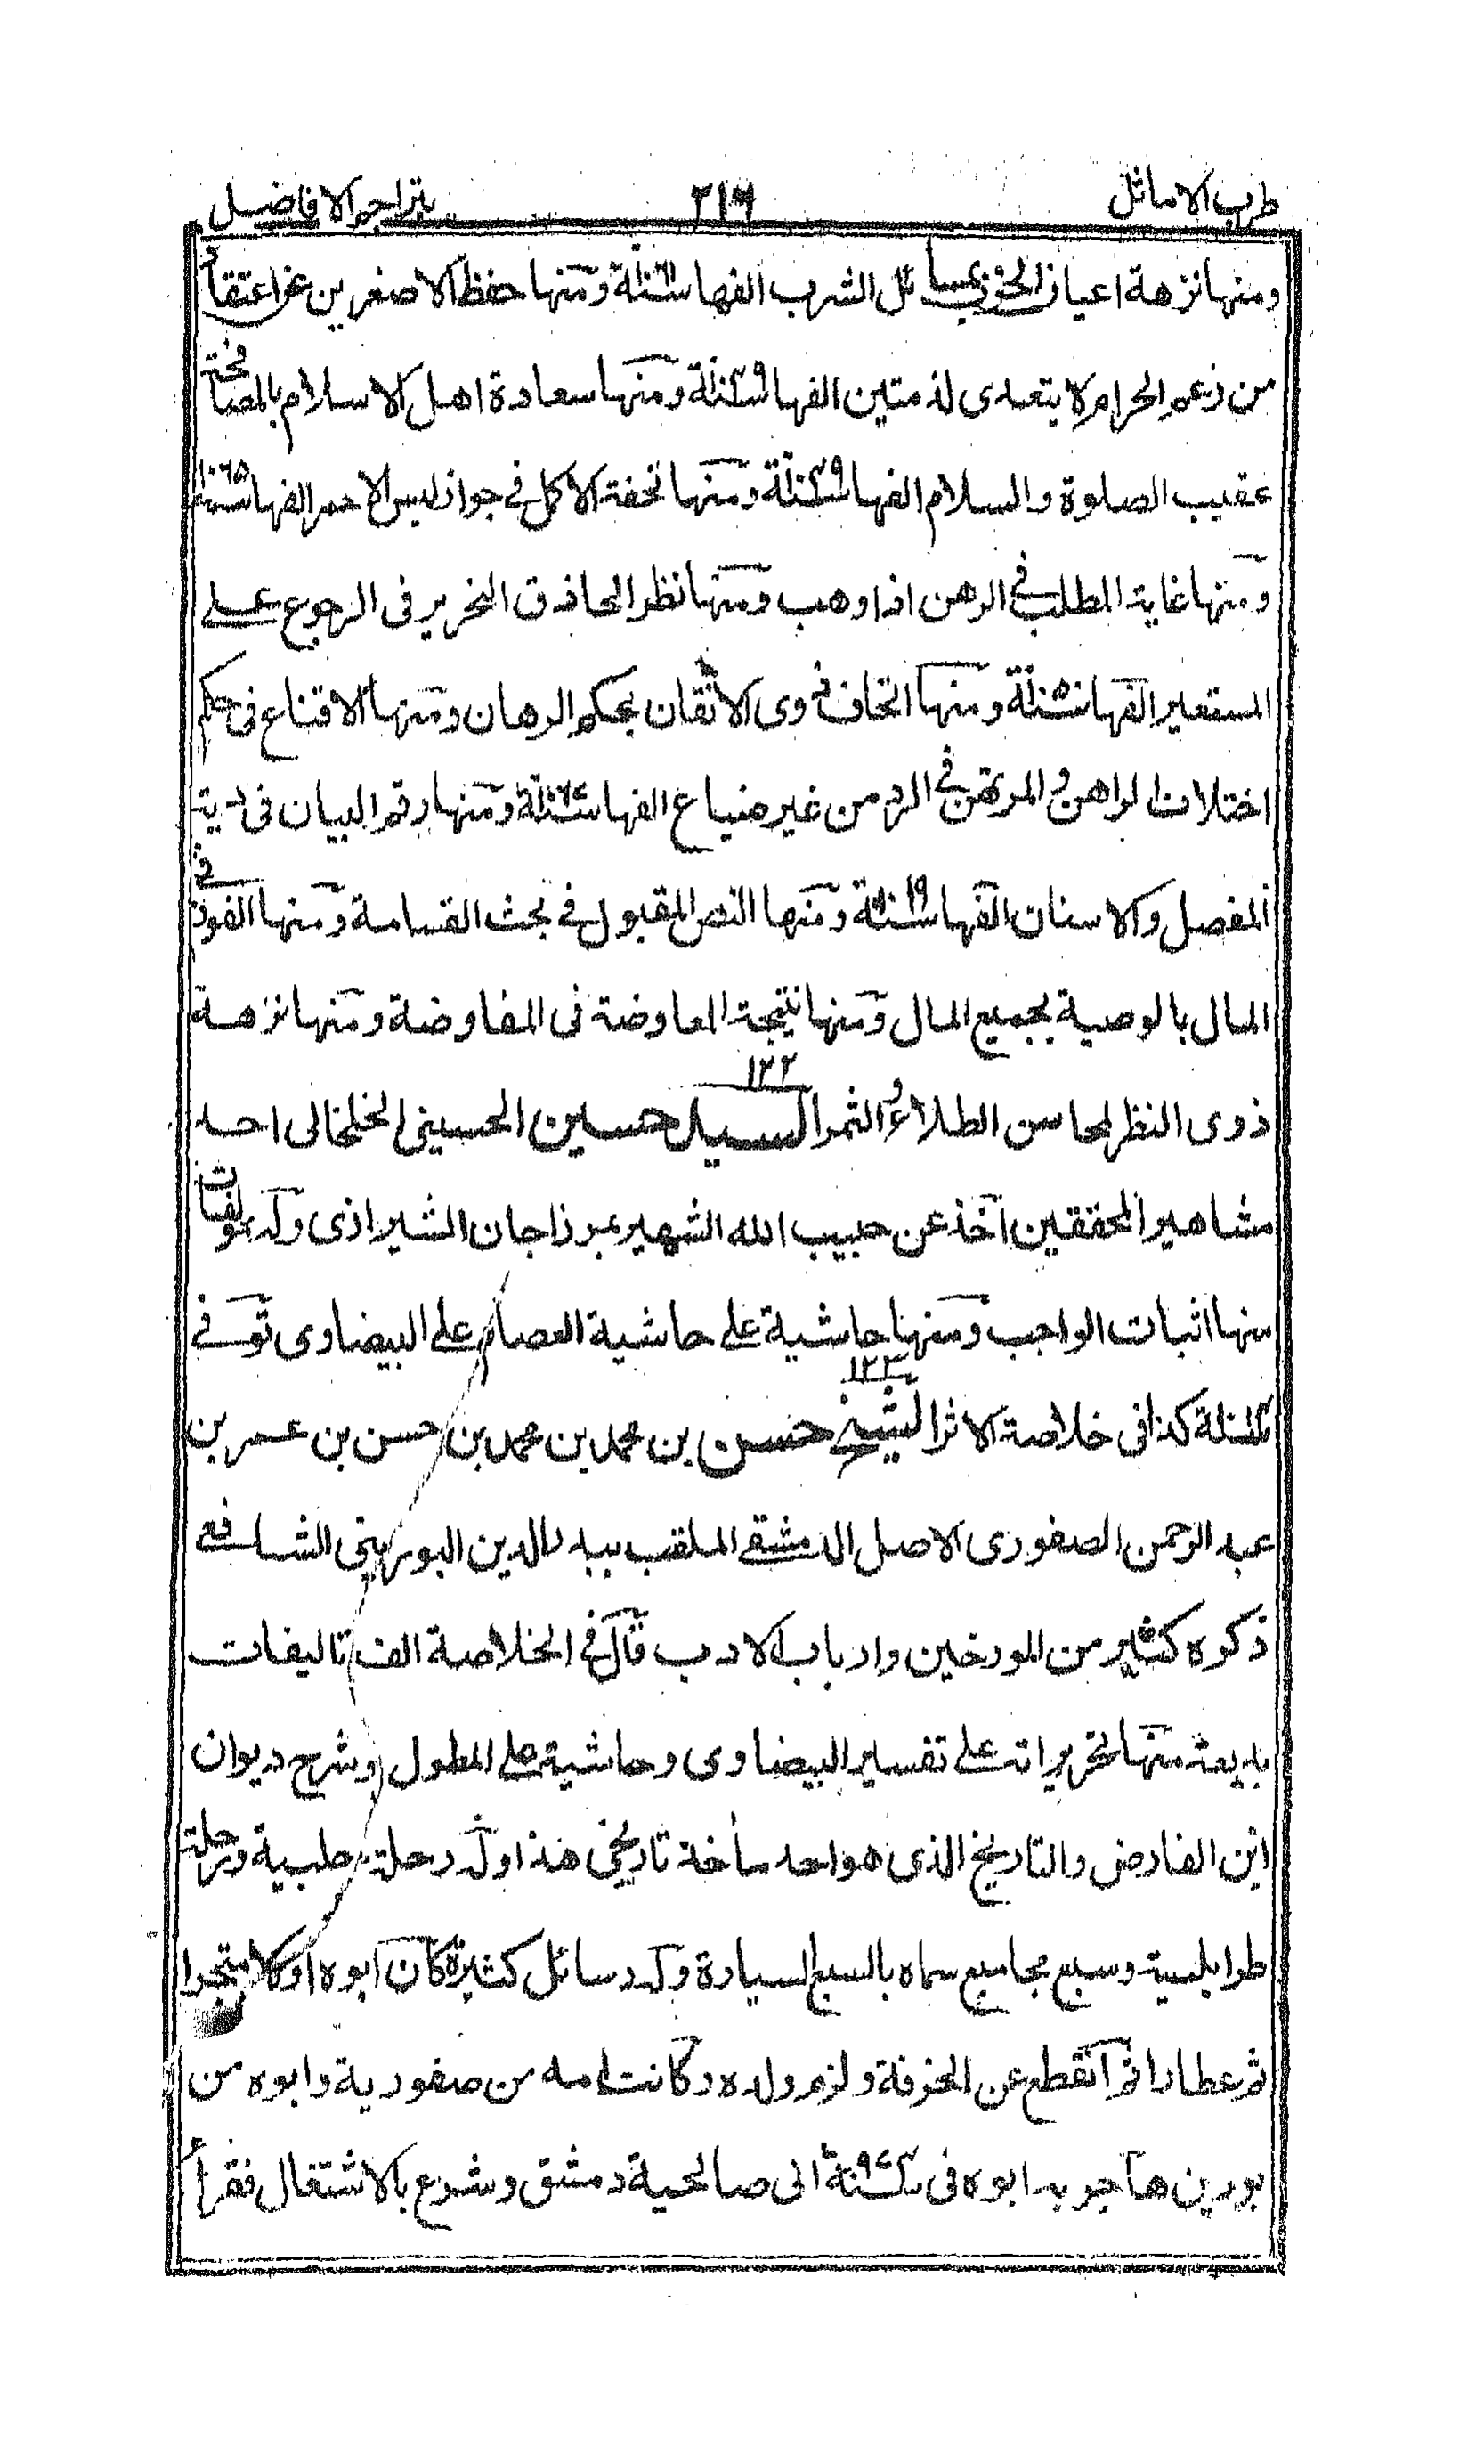 طرب الاماثل ٢١٦ بتراجم الافاضل
ومنها نزهة اعيان الحزب بمسائل الشرب الفها سنة ومنها حفظ الاصغرين عن اعتقاد
من زعم الحرام لا يتعدى لذمتين الفها سنة ومنها سعادة اهل الاسلام بالمصافحة
عقيب الصلوة والسلام الفها سنة ومنها تحفة الاكمل فى جواز لبس الاحمر الفها سنة ١٠٦٥
ومنها غاية المطلب فى الرهن اذا وهب ومنها نظر الحاذق النحرير فى الرجوع على
المستعير الفها سنة ومنها اتحاف ذوى الاتقان بحكم الرهان ومنها الاقناع فى حكم
اختلاف الراهن والمرتهن فى الرد من غير ضياع الفها سنة ومنها رقم البيان فى دية
المفصل والاسنان الفها سنة ومنها النص المقبول فى بحث القسامة ومنها الفوز فى
المال بالوصية بجميع المال ومنها نتيجة المعاوضة فى المفاوضة ومنها نزهة
ذوى النظر لمحاسن الطلاء والثمر ١٢٢ السيد حسين الحسينى الخلخالى احد
مشاهير المحققين اخذ عن حبيب الله الشهير بمرزا جان الشيرازى وله مولفات
منها اثبات الواجب ومنها حاشية على حاشية العصام على البيضاوى توفى
سنة كذا فى خلاصة الاثر ١٢٣ الشيخ حسن بن محمد بن محمد بن حسن بن عمر بن
عبد الرحمن الصفورى الاصل الدمشقى الملقب ببدر الدين البورينى الشافعى
ذكره كثير من المورخين وارباب الادب قال فى الخلاصة الف تاليفات
بديعة منها تحريراته على تفسير البيضاوى وحاشية على المطول وشرح ديوان
ابن الفارض والتاريخ الذى هو احد ماخذ تاريخى هذا وله رحلة حلبية ورحلة
طرابلسية وسبع مجاميع سماه بالسبع السيارة وله رسائل كثيرة كان ابوه اولا متجرا
ثم عطارا ثم انقطع عن الحرفة ولزم ولده وكانت امه من صفورية وابوه من
بورين هاجر به ابوه فى سنة ٩٧٣ الى صالحية دمشق وشرع بالاشتغال فقرأ